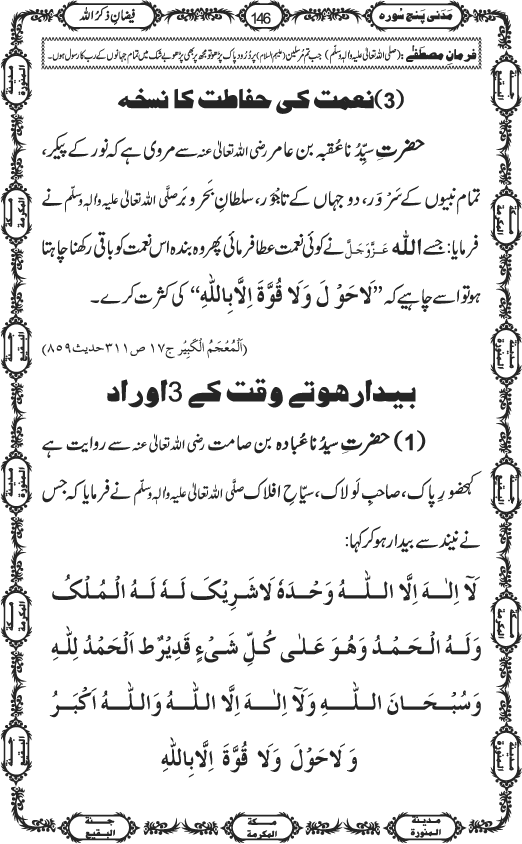 مَدَنی پنج سورہ
146
فیضانِ ذکرُ اللہ
فرمانِ مصطفٰے : (صلی اللہ تعالیٰ علیہ واٰلہٖ وسلّم) جب تم مُرسلین (علیہم السلام) پر دُرُودِ پاک پڑھو تو مجھ پر بھی پڑھو بے شک میں تمام جہانوں کے رب کا رسول ہوں۔
(3) نعمت کی حفاظت کا نسخہ
حضرتِ سیِّدُنا عُقبہ بن عامر رضی اللہ تعالیٰ عنہ سے مروی ہے کہ نور کے پیکر،
تمام نبیوں کے سَرْوَر، دو جہاں کے تاجْوَر، سلطانِ بَحر و بَر صلَّی اللہ تعالیٰ علیہ واٰلہٖ وسلَّم نے
فرمایا: جسے اللہ عَزَّوَجَلَّ نے کوئی نعمت عطا فرمائی پھر وہ بندہ اس نعمت کو باقی رکھنا چاہتا
ہو تو اسے چاہیے کہ ”لَاحَوْلَ وَلَا قُوَّةَ اِلَّابِاللّٰهِ“ کی کثرت کرے۔
(اَلْمُعْجَمُ الْكَبِيْر ج۱۷ ص۳۱۱ حدیث ۸۵۹)
بیدار ہوتے وقت کے 3 اوراد
(1) حضرتِ سیِّدُنا عُبادہ بن صامت رضی اللہ تعالیٰ عنہ سے روایت ہے
کہ حُضورِ پاک، صاحبِ لَولاک، سیّاحِ افلاک صلَّی اللہ تعالیٰ علیہ واٰلہٖ وسلَّم نے فرمایا کہ جس
نے نیند سے بیدار ہو کر کہا:
لَآ اِلٰـهَ اِلَّا اللّٰـهُ وَحْـدَهٗ لَاشَرِيْكَ لَـهٗ لَـهُ الْـمُلْـكُ
وَلَـهُ الْـحَمْـدُ وَهُـوَ عَـلٰى كُـلِّ شَىْءٍ قَدِيْرٌ ط اَلْـحَمْدُ لِلّٰهِ
وَسُبْـحَـانَ اللّٰـهِ وَلَآ اِلٰـهَ اِلَّا اللّٰـهُ وَاللّٰـهُ اَكْبَـرُ
وَلَاحَوْلَ وَلَا قُوَّةَ اِلَّابِاللّٰهِ
مدینة المنورة
مكة المكرمة
جنة البقيع
مدینة المنورة
مكة المكرمة
جنة البقيع
جنة البقيع
مكة المكرمة
مدینة المنورة
جنة البقيع
مكة المكرمة
مدینة المنورة
مدینة المنورة
مكة المكرمة
جنة البقيع